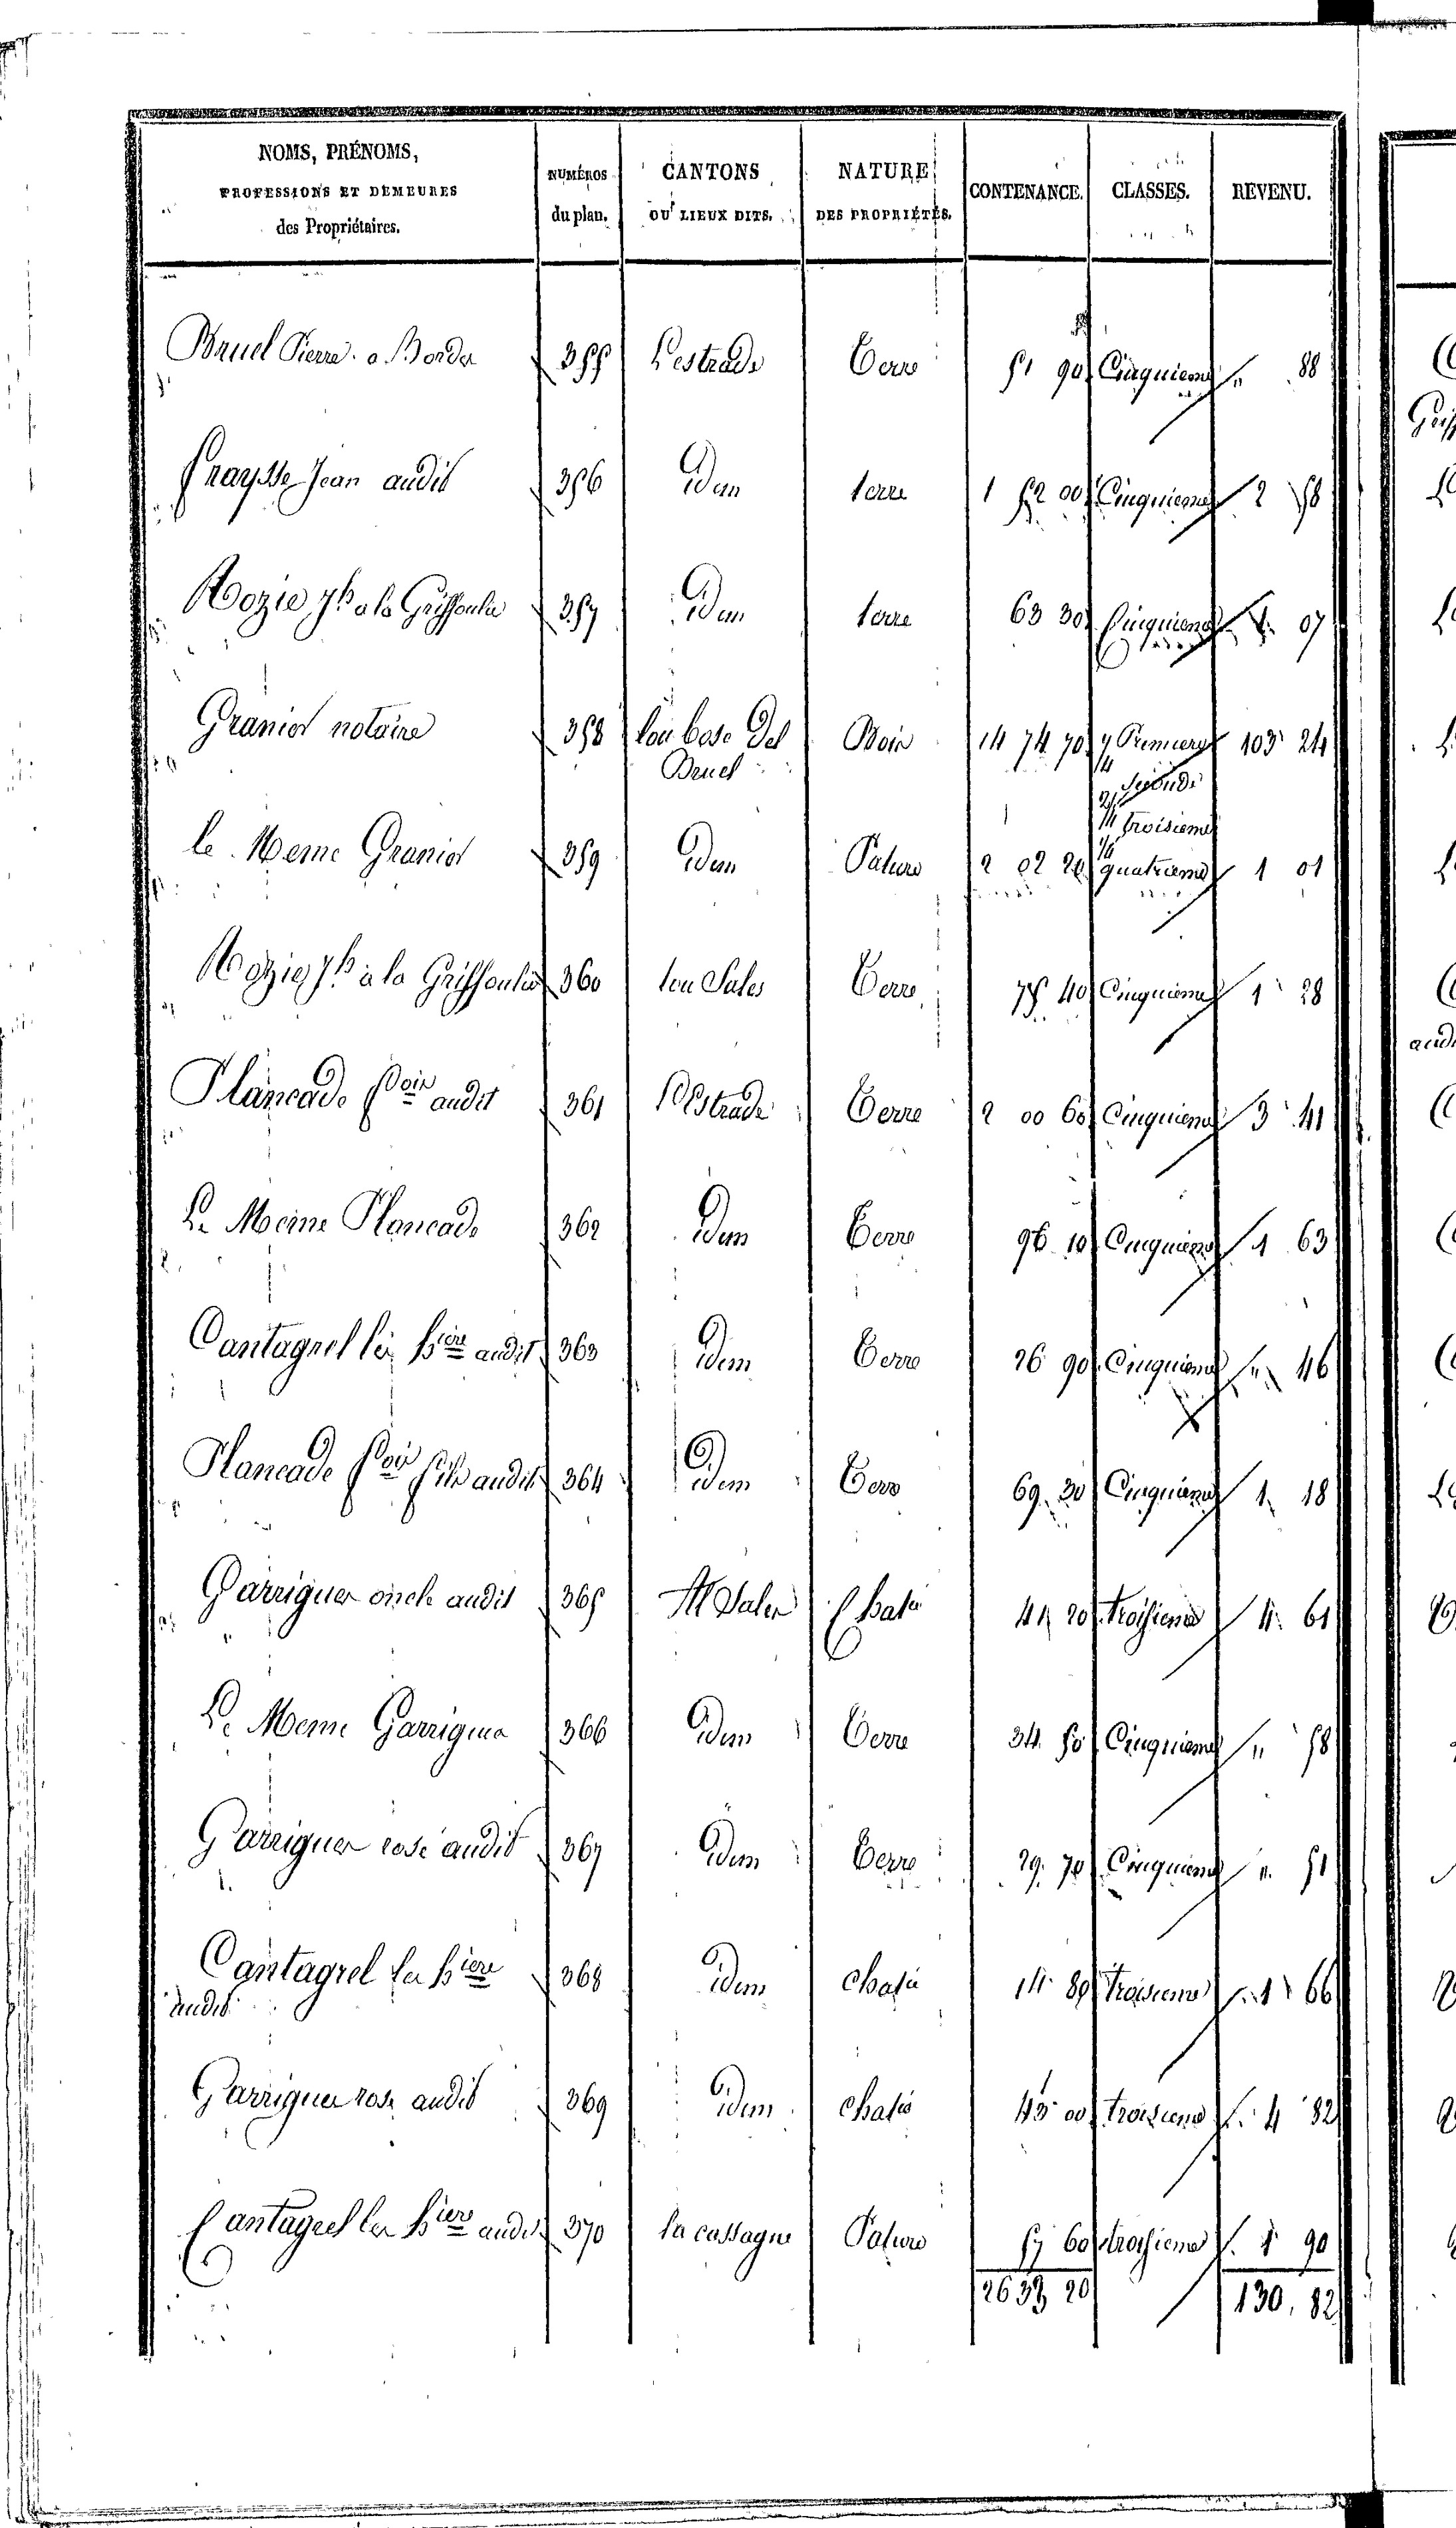 NOMS, PRÉNOMS, PROFESSIONS ET DEMEURES des Propriétaires. NUMÉROS du plan. CANTONS OU LIEUX DITS. NATURE DES PROPRIÉTÉS. CONTENANCE. CLASSES. REVENU.
Bruel Pierre a Bordes 355 Lestrade Terre 51 90 Cinquieme " 88
fraysse Jean audit 356 Idem terre 1 52 00 Cinquieme 2 58
Mozie jh a la Griffoulie 357 Idem terre 63 30 Cinquieme 1 07
Granier notaire 358 lou bosc Del Bruel Bois 14 74 70 7/14 Premiere 103 24
seconde
troisieme
le Meme Granier 359 Idem Pature 2 02 20 quatrieme 1 01
Mozie jh a la Griffoulie 360 lou Sales Terre 75 40 Cinquieme 1 28
Plancade fois audit 361 L'Estrade Terre 2 00 60 Cinquieme 3 41
Le Meme Plancade 362 Idem Terre 96 10 Cinquieme 1 63
Cantagrel les hiers audit 363 Idem Terre 26 90 Cinquieme " 46
Plancade fois fils audit 364 Idem Terre 69 30 Cinquieme 1 18
Garrigues oncle audit 365 Al Sales Chatie 41 20 troisieme 4 61
Le Meme Garrigues 366 Idem Terre 34 50 Cinquieme " 58
Garrigues rose audit 367 Idem Terre 29 70 Cinquieme " 51
Cantagrel les hiers audit 368 Idem chatie 14 80 troisieme 1 66
Garrigues rose audit 369 Idem chatie 43 00 troisieme 4 82
Cantagrel les hiers audit 370 la cassagne Pature 57 60 troisieme 1 90
26 33 20 130, 82